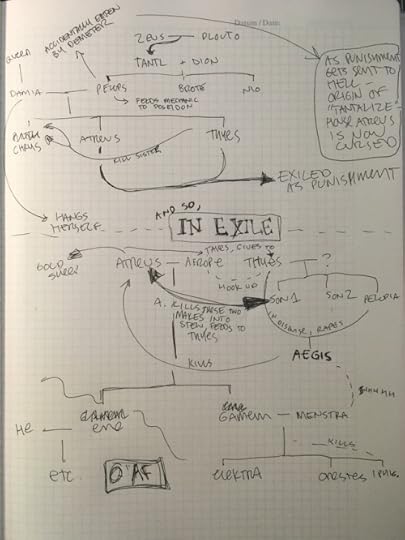 Datum / Date:
ACCIDENTALLY EATEN
BY DEMETER
ZEUS — PLOUTO
TANTL + DION
QUEEN
DAMIA
PELOPS
BROTE
NIO
AS PUNISHMENT
GETS SENT TO
HELL –
ORIGIN OF
"TANTALIZE"
HOUSE ATREUS
IS NOW
CURSED
CHRYS
ATREUS
THYES
KILL SISTER
EXILED
AS PUNISHMENT
HANGS
HERSELF
AND SO,
IN EXILE
GOLD
THYES, GIVES TO
ATREUS — AEROPE
THYES
?
HOOK UP
SON 1
SON 2
PELOPIA
A. KILLS THESE TWO
MAKES INTO
STEW, FEEDS TO
THYES
IN DISGUISE, RAPES
AEGIS
KILLS
HE
ene
GAMEM — MENSTRA
KILLS
etc.
O AF
ELEKTRA
ORESTES